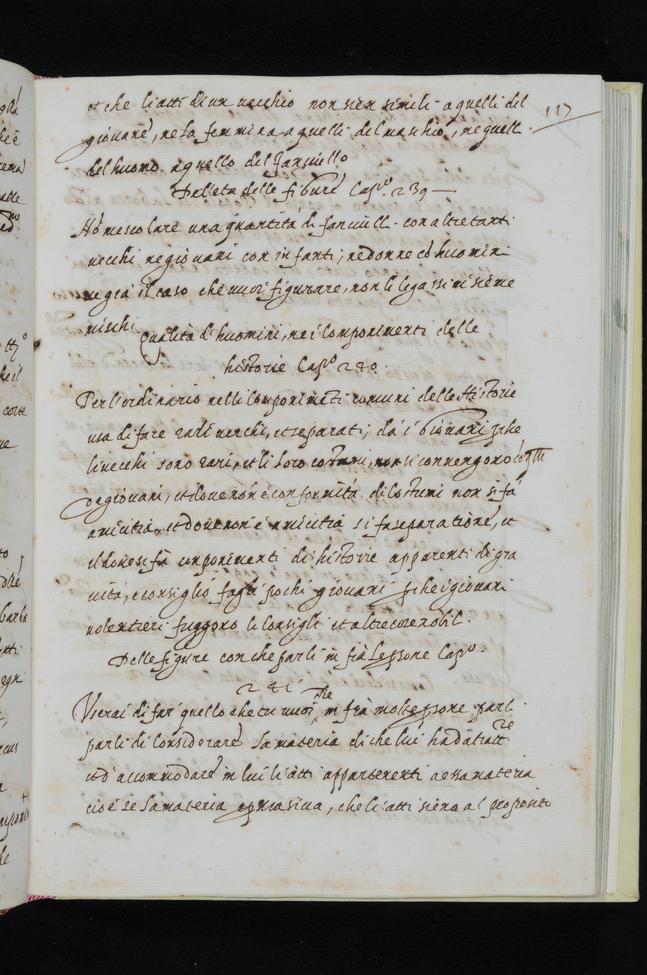 et che li atti di un vecchio non sien simili a quelli del
117
giovane, ne la femmina a quelli del maschio, ne quelli
del huomo a quello del fanciullo
Dell'eta delle figure Cap.º 239
Nō mescolare una quantità di fanciulli con altretanti
vecchi ne giovani con infanti, ne donne cō huomini
ne già il caso che vuoi figurare, non le legassi insieme
mischi
Qualità d'huomini, ne i componimenti delle
historie Cap.º 240.
Per l'ordinario nelli componimēti comuni delle Historie
usa di fare radi vecchi, et separati, da i giovani p che
li vecchi sono rari, et li loro costumi, non si convengono cō qlli
de giovani, et dove non è conformità di costumi non si fa
amicitia, et dove non è amicitia si fa separatione, et
et dove si fà componimenti di historie apparenti di gra
vità, e consiglio fagli pochi giovani p che i giovani
volentieri fuggono li consigli et altre cose nobil.
Delle figure con che parli in frà Le psone Cap.º
241
Userai di far quello che tu vuoi che in frà molte psone parli
parli di considerare la materia di che lui hà da trattare
et d'accommodare in lui li atti appartenenti a essa materia
cioè se la materia è psuasiva, che li atti sieno al proposito